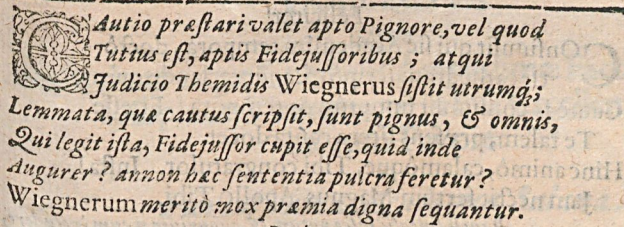 CAutio præſtari valet apto Pignore, vel quod
Tutius eſt, aptis Fidejuſſoribus ; atqui
Judicio Themidis Wiegnerus ſiſtit utrumq́;;
Lemmata, quæ cautus ſcripſit, ſunt pignus, & omnis,
Qui legit iſta, Fidejuſſor cupit eſſe, quid inde
Augurer ? annon hæc ſententia pulcra feretur ?
Wiegnerum meritò mox præmia digna ſequantur.